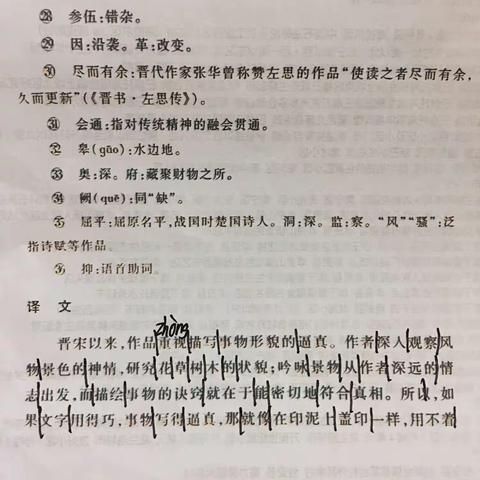 ㉘ 参伍:错杂。
㉙ 因:沿袭。革:改变。
㉚ 尽而有余:晋代作家张华曾称赞左思的作品“使读之者尽而有余,
久而更新”(《晋书·左思传》)。
㉛ 会通:指对传统精神的融会贯通。
㉜ 皋(gāo):水边地。
㉝ 奥:深。府:藏聚财物之所。
㉞ 阙(quē):同“缺”。
㉟ 屈平:屈原名平,战国时楚国诗人。洞:深。监:察。“风”“骚”:泛
指诗赋等作品。
㊱ 抑:语首助词。
译 文
zhòng
晋宋以来,作品重视描写事物形貌的逼真。作者深入观察风
物景色的神情,研究花草树木的状貌;吟咏景物从作者深远的情
志出发,而描绘事物的诀窍就在于能密切地符合真相。所以,如
果文字用得巧,事物写得逼真,那就像在印泥上盖印一样,用不着